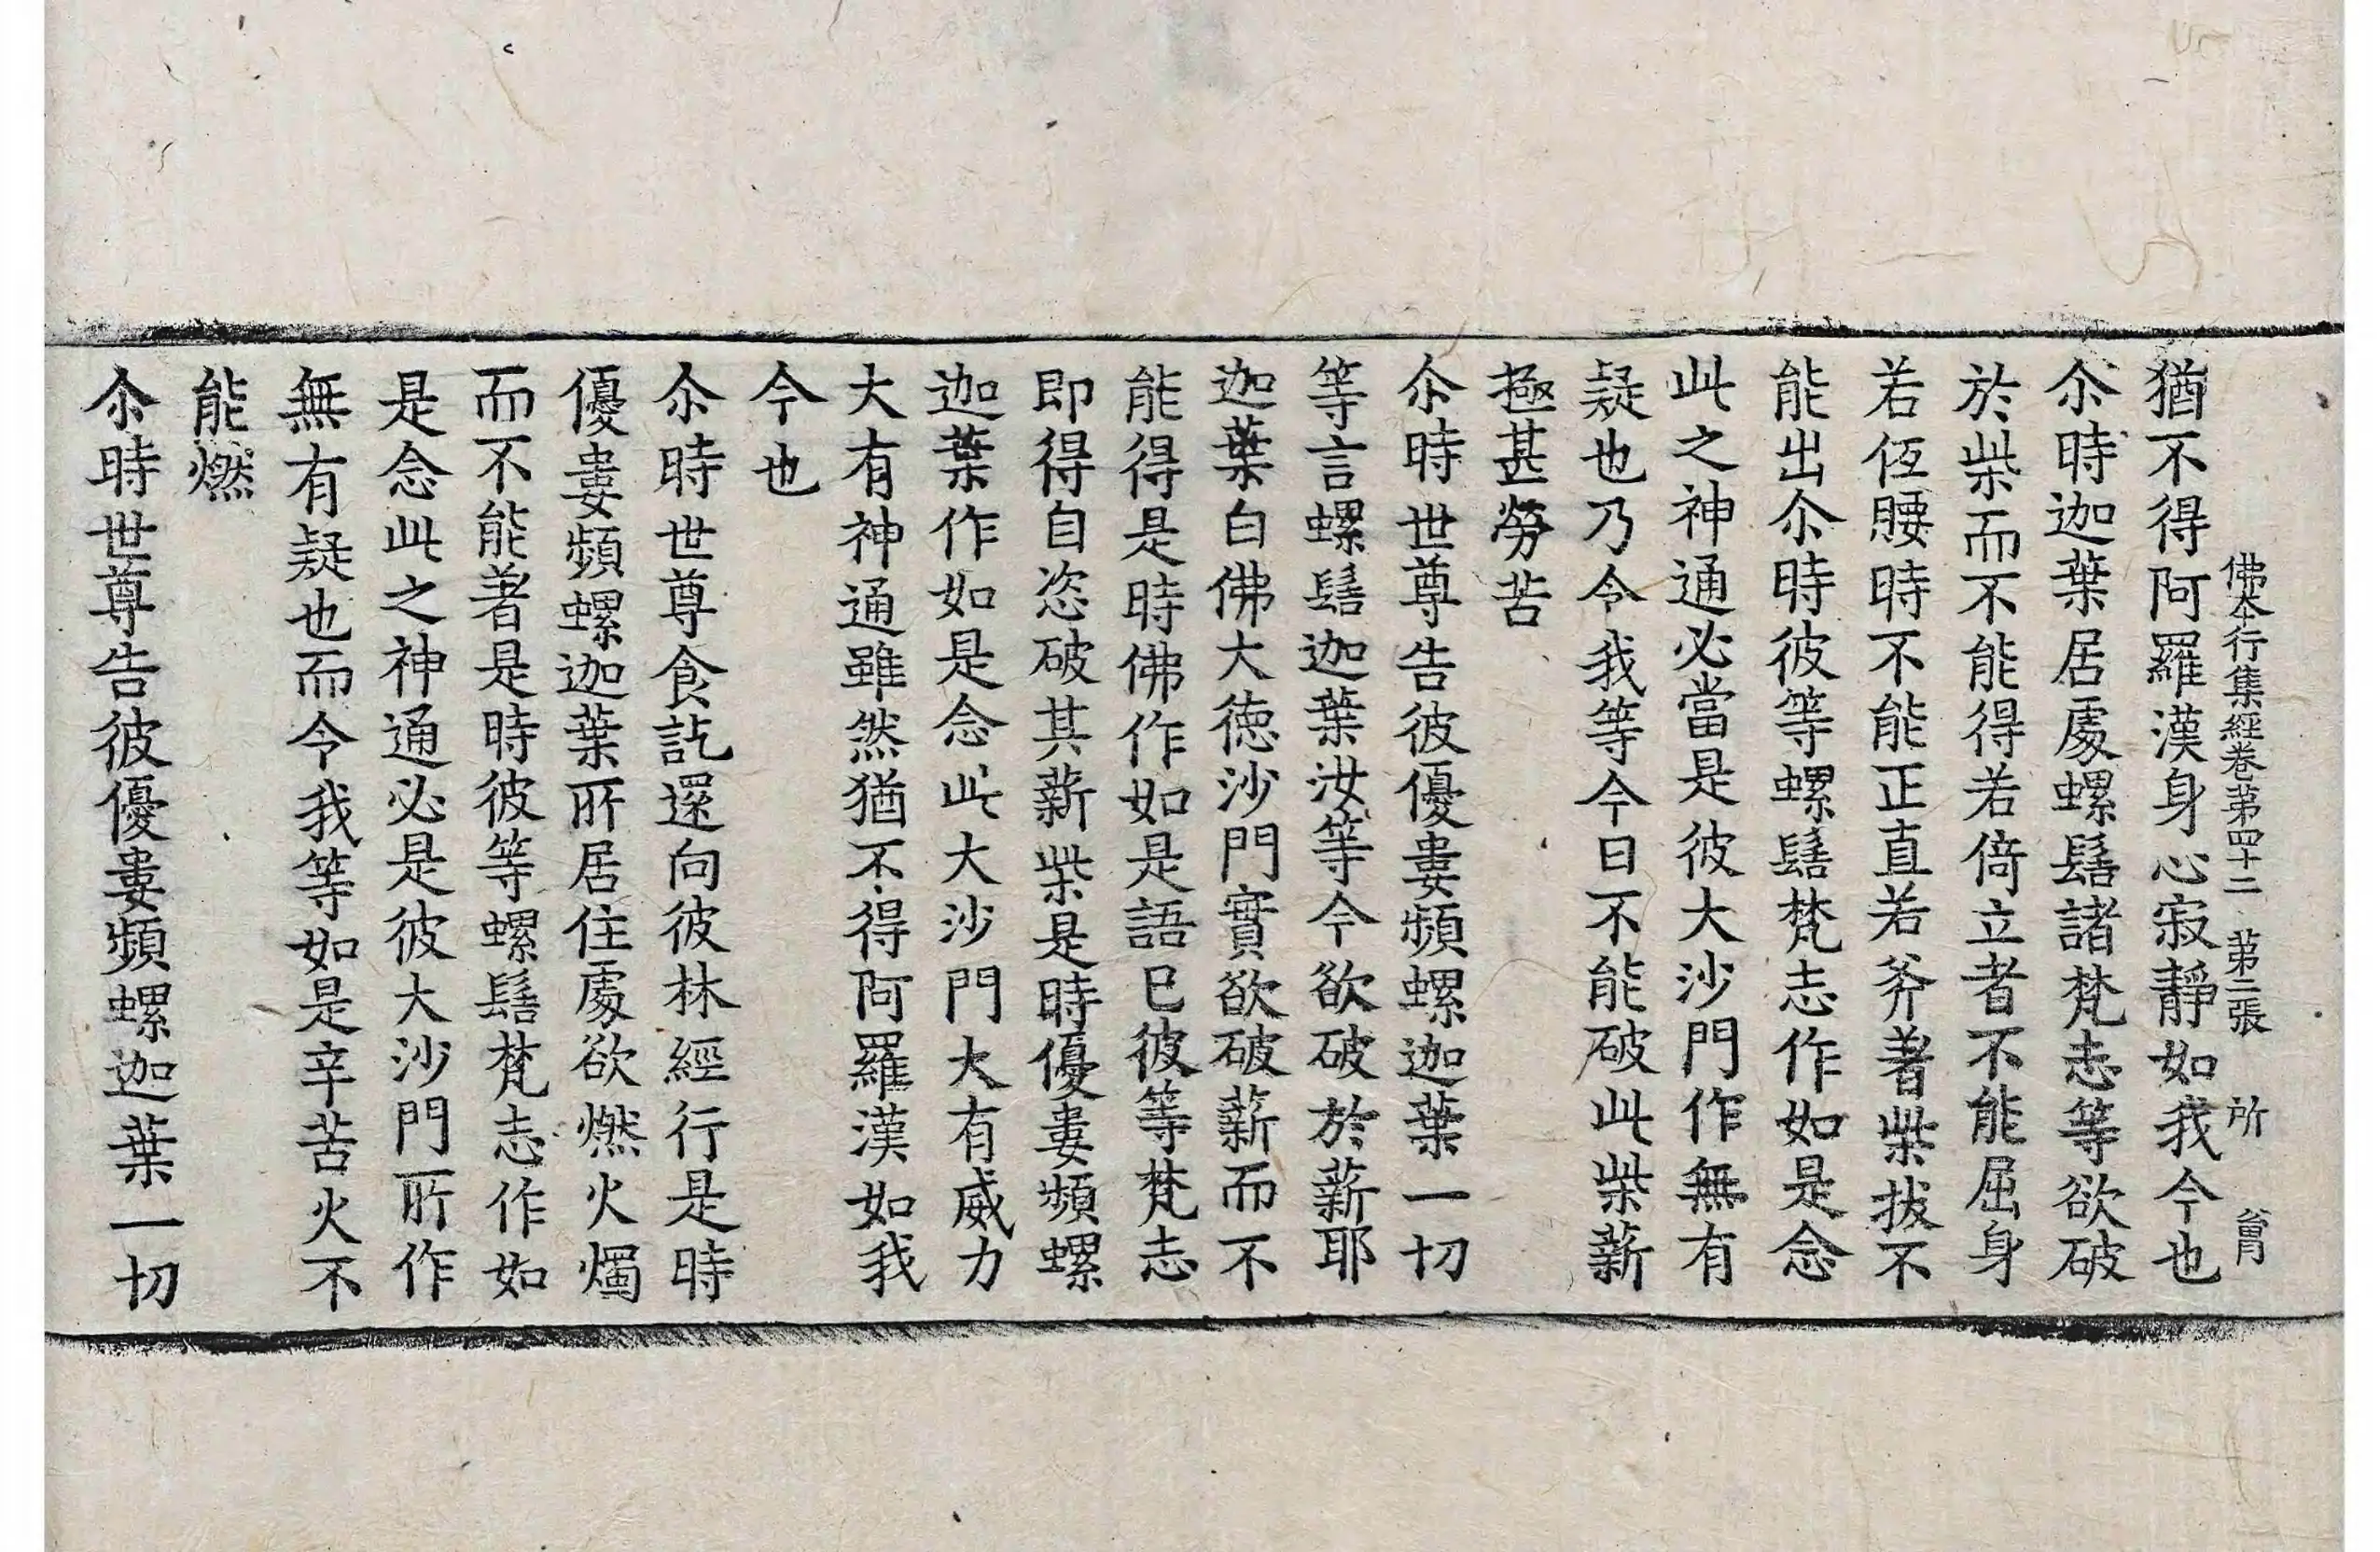 佛本行集經卷第四十二 第二張 所
猶不得阿羅漢身心寂靜如我今也
尒時迦葉居處螺髻諸梵志等欲破
於柴而不能得若倚立者不能屈身
若伛腰時不能正直若斧著柴拔不
能出尒時彼等螺髻梵志作如是念
此之神通必當是彼大沙門作無有
疑也乃令我等今日不能破此柴薪
極甚勞苦
尒時世尊告彼優婁頻螺迦葉一切
等言螺髻迦葉汝等今欲破於薪耶
迦葉白佛大徳沙門實欲破薪而不
能得是時佛作如是語已彼等梵志
即得自恣破其薪柴是時優婁頻螺
迦葉作如是念此大沙門大有威力
大有神通雖然猶不得阿羅漢如我
今也
尒時世尊食訖還向彼林經行是時
優婁頻螺迦葉所居住處欲燃火燭
而不能著是時彼等螺髻梵志作如
是念此之神通必是彼大沙門所作
無有疑也而令我等如是辛苦火不
能燃
尒時世尊告彼優婁頻螺迦葉一切